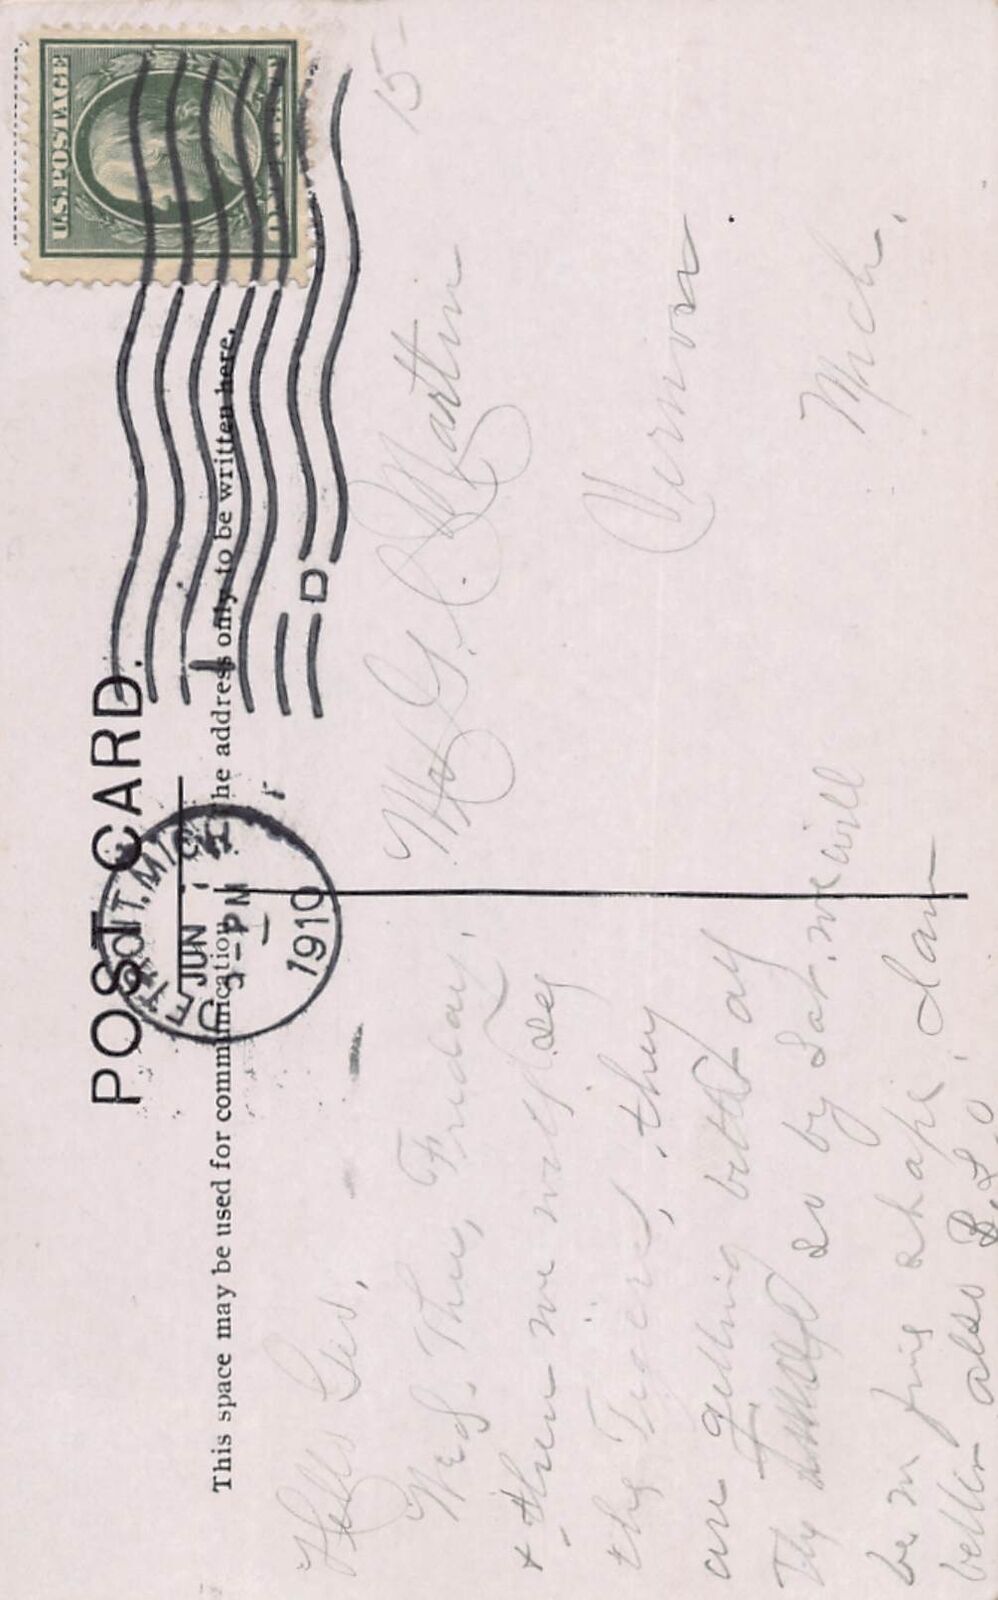 POST CARD.
This space may be used for communication. The address only to be written here.
U.S. POSTAGE
DETROIT, MICH.
JUN
3-PM
1910
D
15-
Hello Geo,
Wed. Thu, Friday,
& then we will see
the Tigers, they
are getting
so by Sat. we will
be in fine shape, I am
better also B.L.O
Mr G. L. Martin
Vernon
Mich.